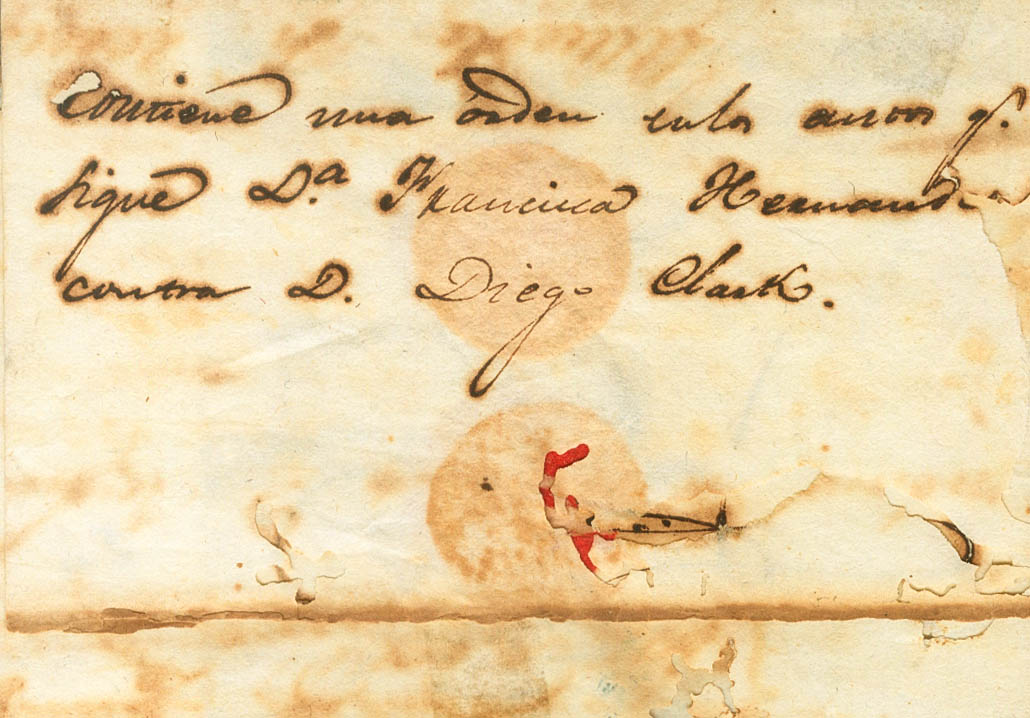 contiene una orden en los autos q.
sigue D.a Francisca Hernand
contra D. Diego Clark.